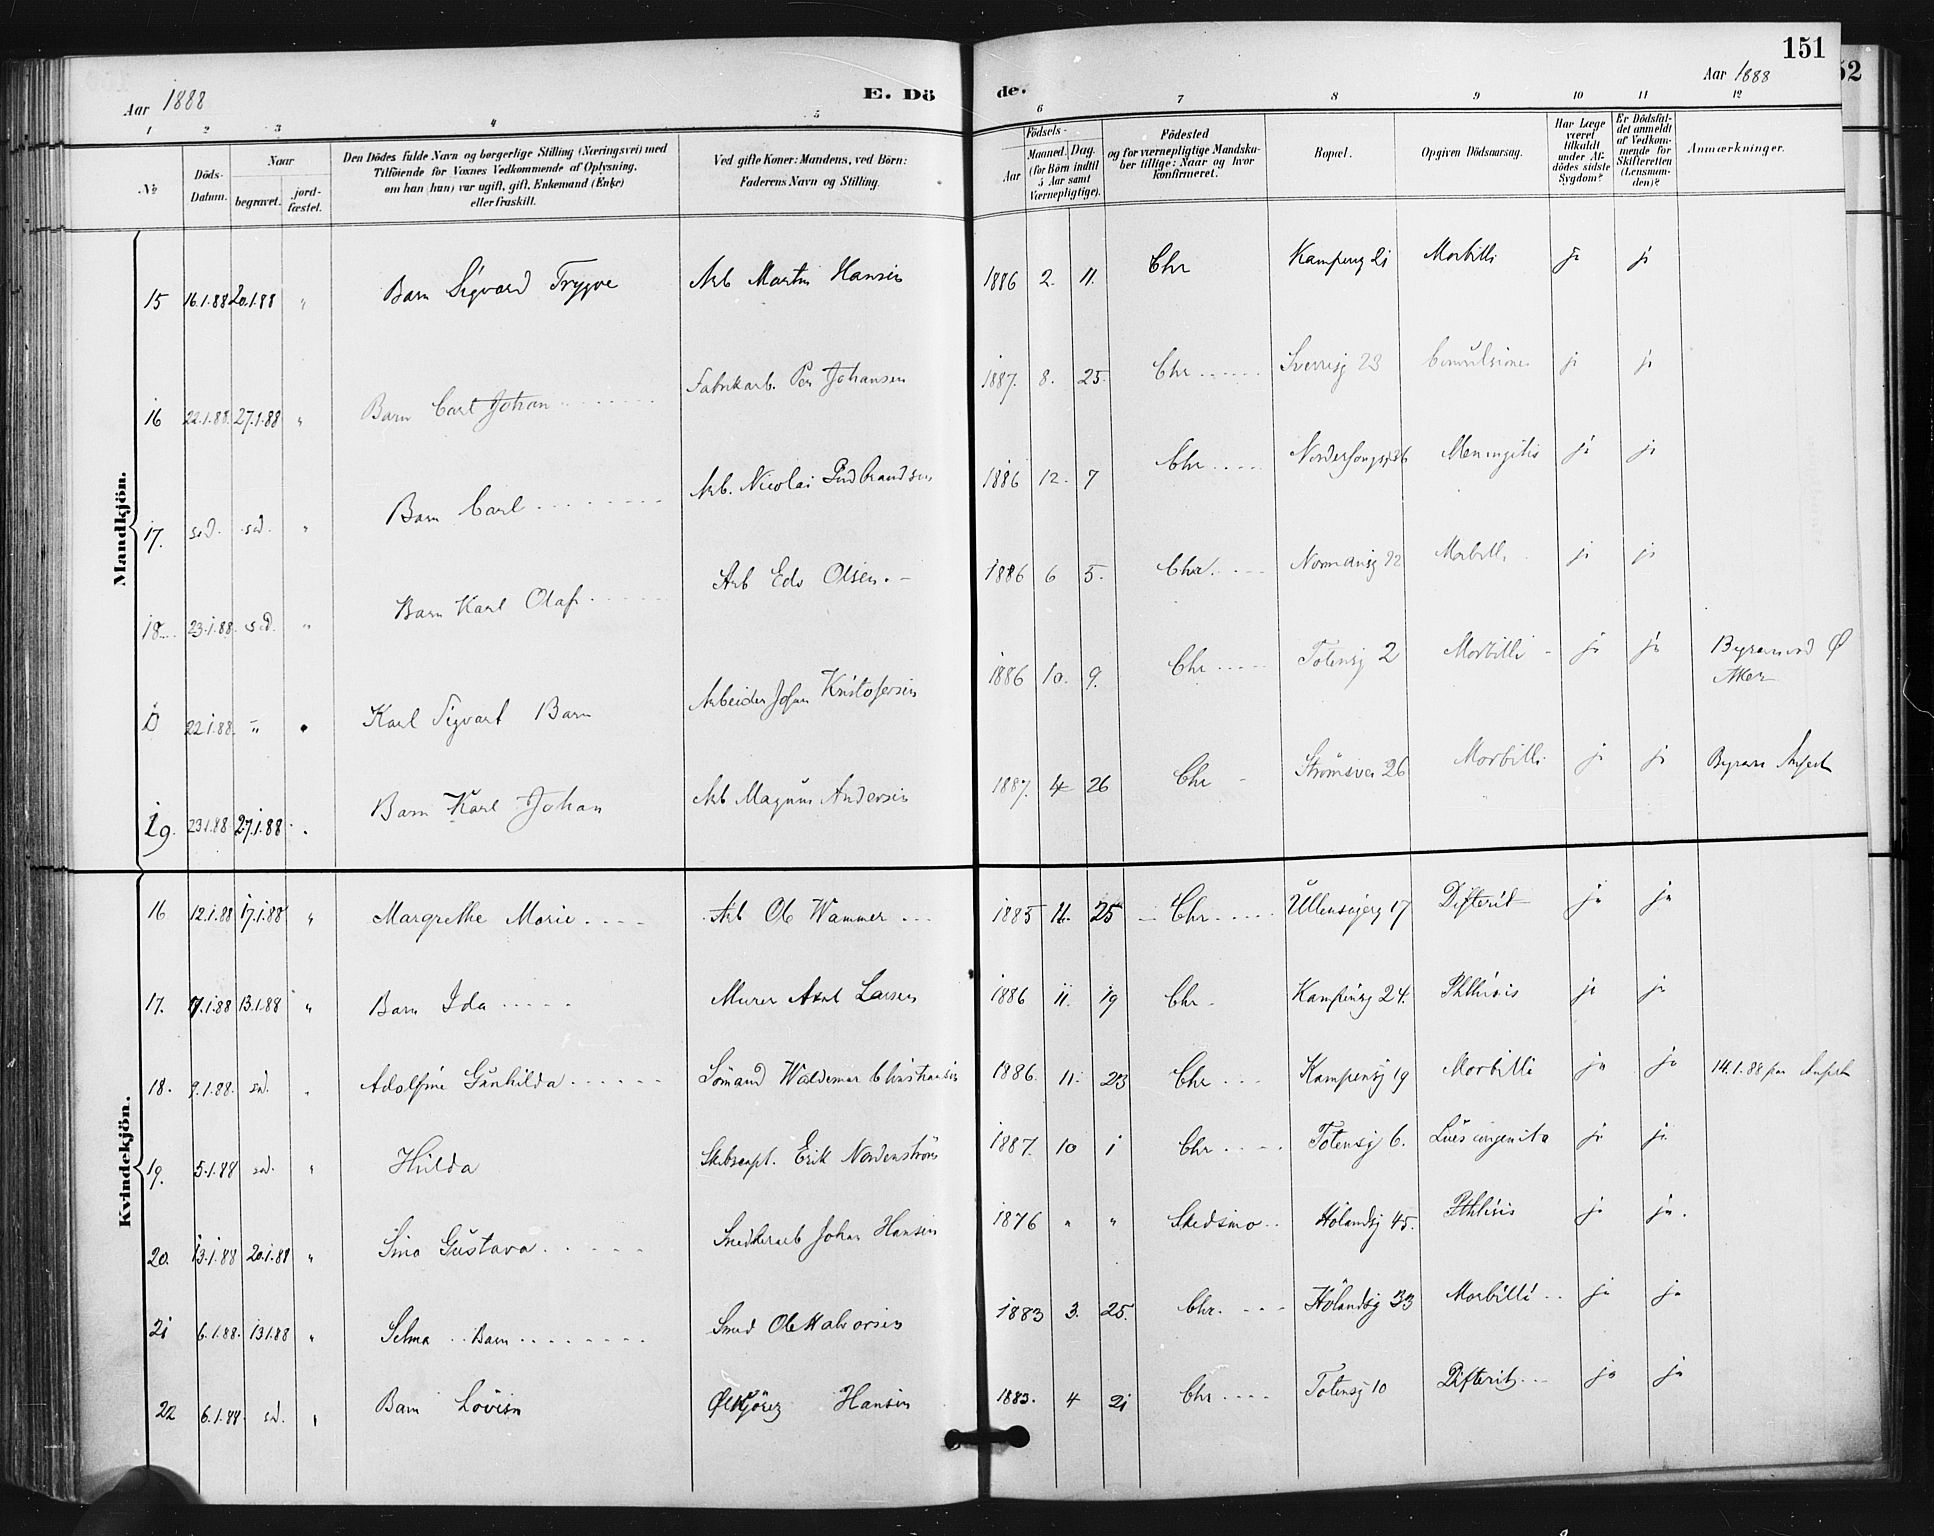 151
52
Aar 1888
E. Dö
de.
Aar 1888
1 2 3 4 5 6 7 8 9 10 11 12
№
Döds-
Datum.
Naar
begravet.
jord-
fæstet.
Den Dödes fulde Navn og borgerlige Stilling (Næringsvei) med
Tilföiende for Voxnes Vedkommende af Oplysning,
om han (hun) var ugift, gift, Enkemand (Enke)
eller fraskilt.
Ved gifte Koner: Mandens, ved Börn:
Faderens Navn og Stilling.
Födsels-
Aar
Maaned. Dag.
(for Börn indtil
5 Aar samt
Værnepligtige).
Födested
og for værnepligtige Mandsku-
ber tillige: Naar og hvor
konfirmeret.
Bopæl.
Opgiven Dödsaarsag.
Har Læge
været
tilkaldt
under Af-
dödes sidste
Sygdom?
Er Dödsfal-
det anmeldt
af Vedkom-
mende for
Skifteretten
(Lensman-
den)?
Anmærkninger.
Mandkjön.
15 16.1.88 20.1.88 " Barn Sigvard Trygve Arb Martin Hansen 1886 2. 11. Chr Kampeng 21 Morbilli ja ja
16 22.1.88. 27.1.88 " Barn Carl Johan Fabrikarb. Per Johansen 1887. 8. 25. Chr Sverresg 23 Convulsiones ja ja
17. sad. sad. " Barn Carl Arb. Nicolai Gudbrandsen 1886 12. 7 Chr Meningitis ja ja
18 23.1.88. sad. " Barn Karl Olaf Arb Edv Olsen. 1886 6 5. Chr. Normansg 22 Morbilli ja ja
0 22.1.88. " Karl Sigvart Barn Arbeider Johan Kristofersen 1886 10. 9. Chr Totensg 2 Morbilli ja ja Ø
Aker
19. 23.1.88 27.1.88 " Barn Karl Johan Arb Magnus Andersen 1887. 4 26 Chr Strømsvei 26 Morbilli ja ja
Kvindekjön.
16 12.1.88 17.1.88 " Margrethe Marie Arb Ole Wammer 1885 11. 25 Chr Ullensagerg 17 Difterit ja ja
17. 7.1.88 13.1.88 " Barn Ida Murer Axel Larsen 1886 11. 19 Chr Kampensg 24. Phthisis ja ja
18. 9.1.88. sad. " Adolfine Gunhilda Sömand Waldemar Christiansen 1886. 11. 23 Chr Kampensg 19 Morbilli ja ja 14.1.88 paa
19. 5.1.88 sad. " Hilda Skibscapt. Erik Nordenström 1887. 10 1 Chr Totensg 6. Lues congenita ja ja
20. 13.1.88 20.1.88 " Sina Gustava Snedkerarb Johan Hansen 1876 " " Skedsmo Hølandsg 45. Phthisis ja ja.
21 6.1.88. 13.1.88 " Selma Barn Smed Ole Halvorsen 1883 3. 25. Chr. Hölandsg 33 Morbilli ja ja
22 6.1.88. sad. " Barn Lovise Hansen 1883. 4 21 Chr Totensg 10 Difterit ja ja